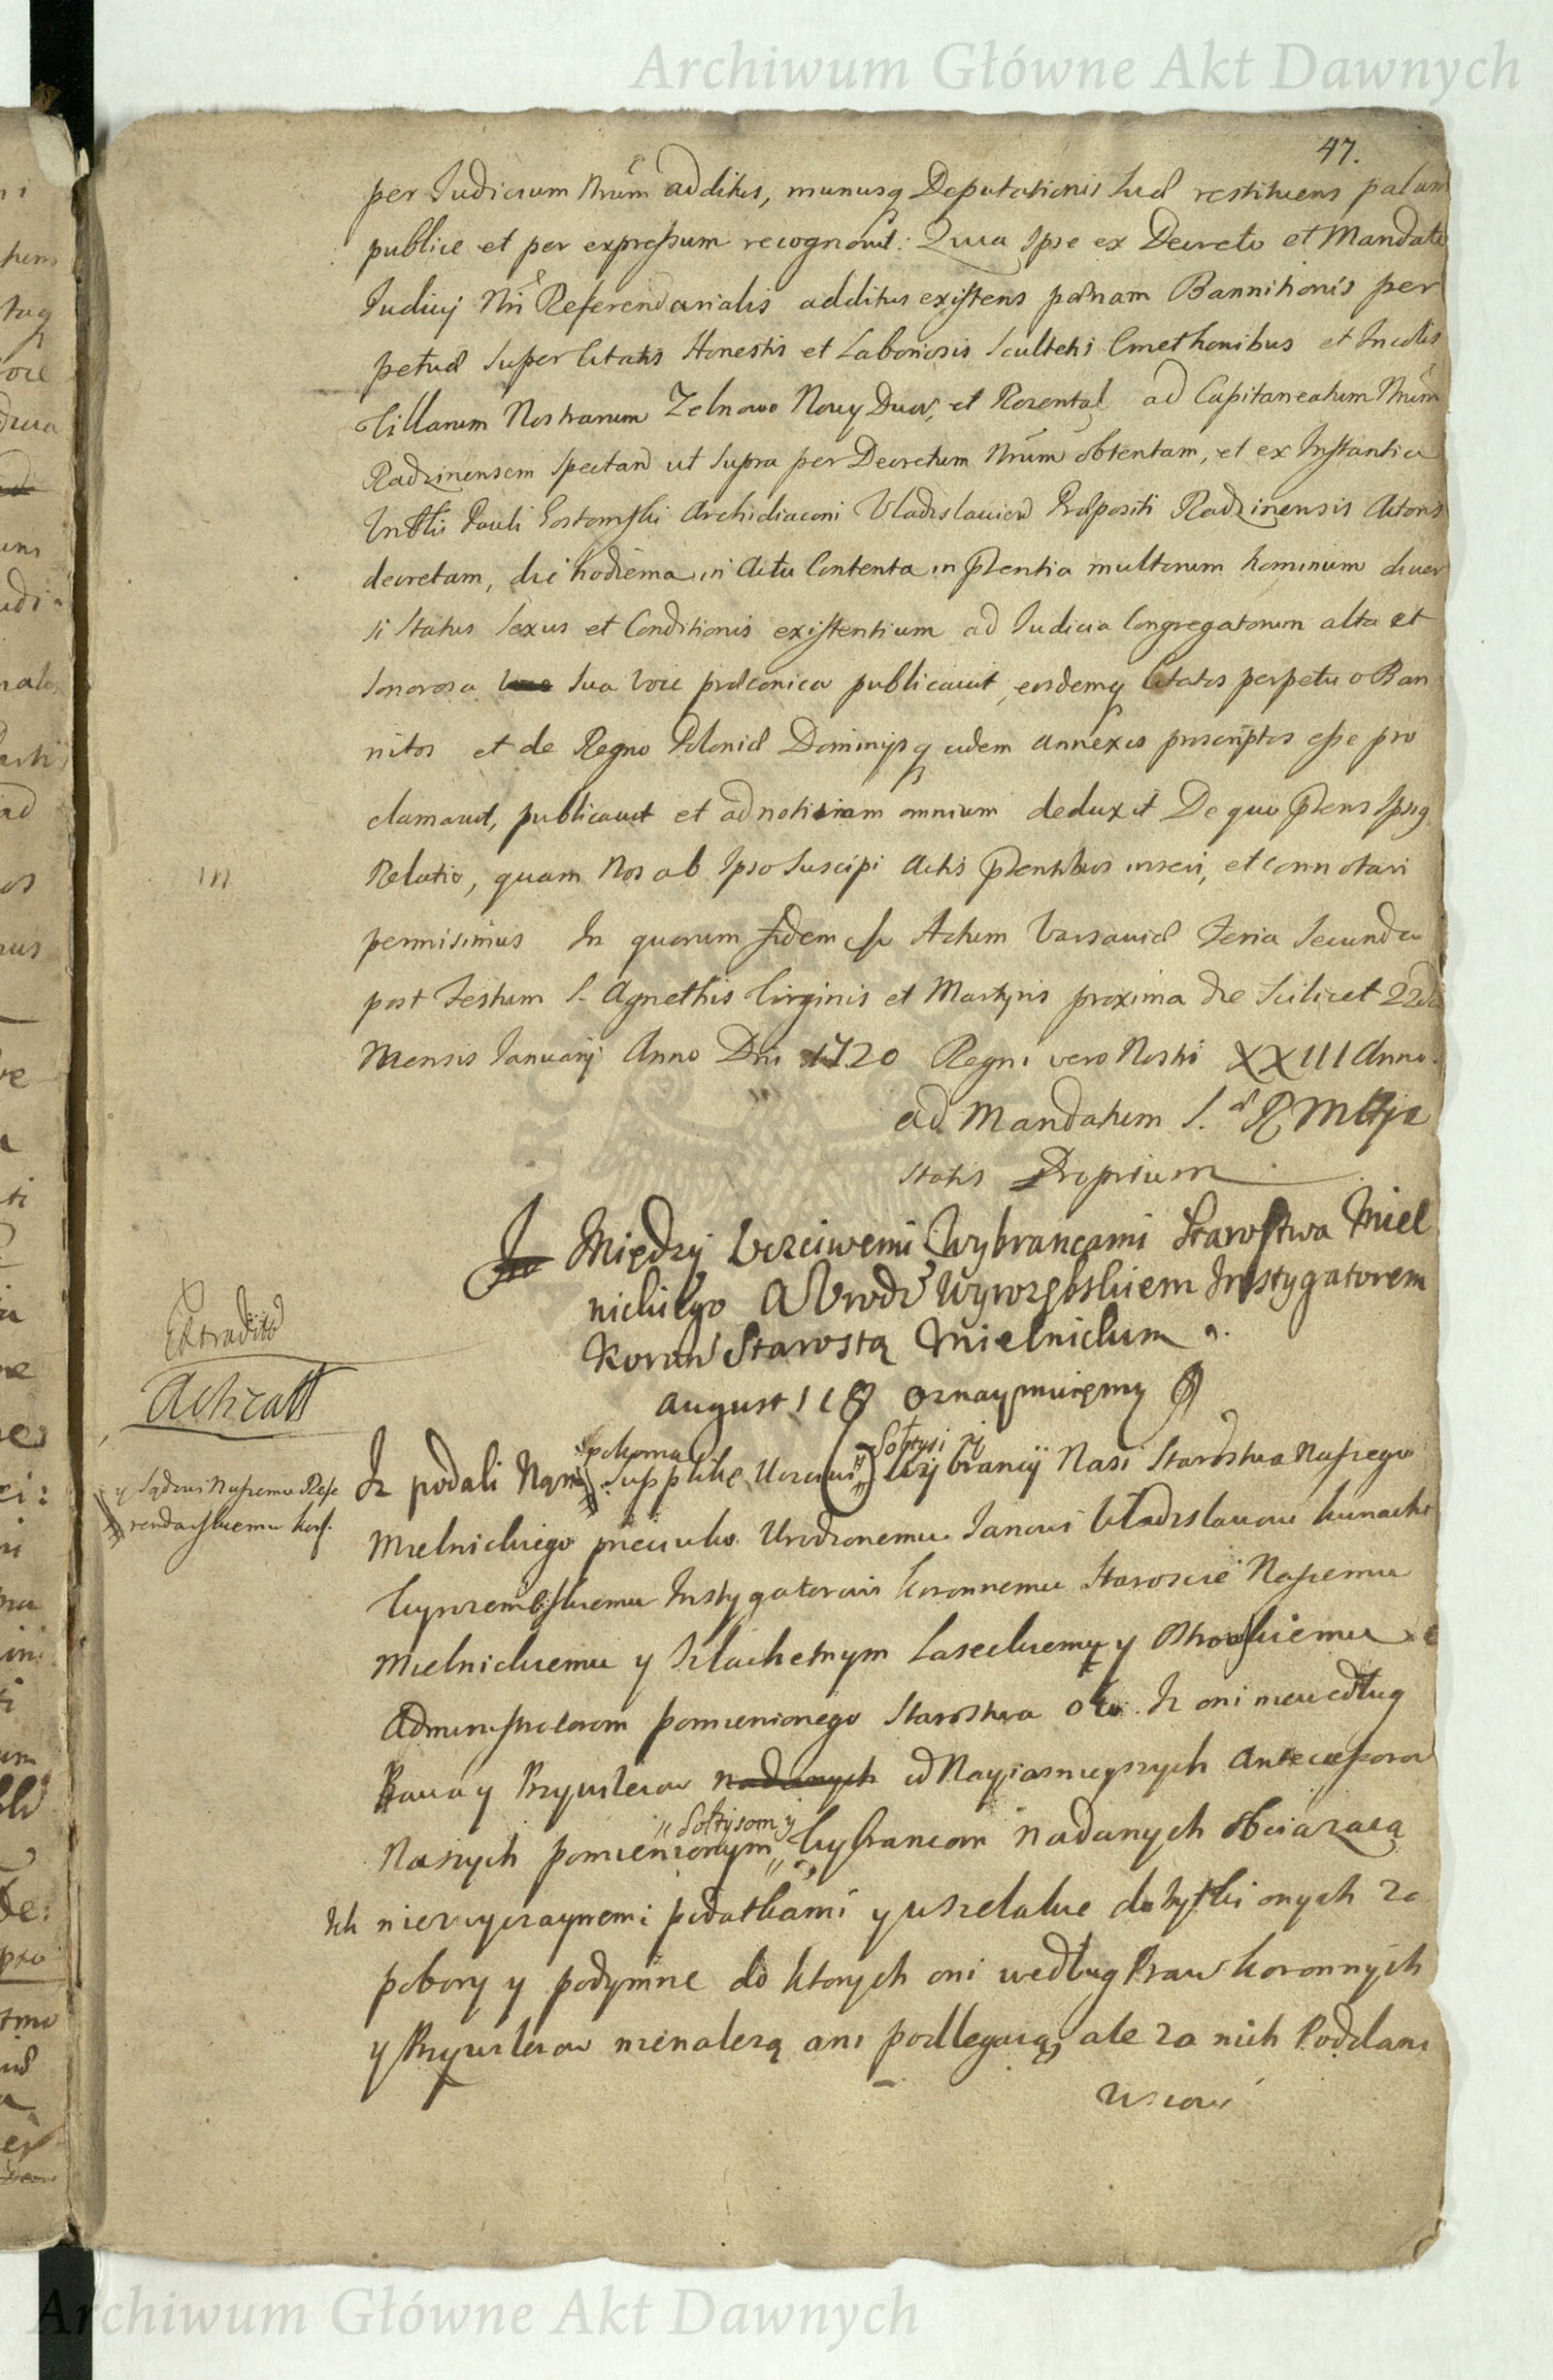 Archiwum Główne Akt Dawnych
47.
per Judicium Nrum additus, munusq Deputationis suæ restituens palam
publice et per expressum recognovit: Quia Ipse ex Decreto et Mandato
Judicij Nri Referendarialis additus existens pænam Bannitionis per
petuæ super Citatis Honestis et Laboriosis Scultetis Cmethonibus et Incolis
Villarum Nostrarum Zelnowo Nowy Dwor, et Rozental ad Capitaneatum Nrum
Radzinensem spectan ut supra per Decretum Nrum obtentam, et ex Instantia
Pauli Archidiaconi Vladislavien Præpositi Radzinensis Actoris
decretam, die hodierna in Actu Contenta in Pntia multorum hominum diver
si Status Sexus et Conditionis existentium ad Judicia Congregatorum alta et
sonorosa sua voce præconica publicavit, eosdemq Citatos perpetuo Ban
nitos et de Regno Poloniæ Dominijsq eidem annexis proscriptos esse pro
clamavit, publicavit et ad notitiam omnium deduxit De quo Pns Ipsiq
Relatio, quam Nos ab Ipso suscipi Actis Pntibus inseri, et connotari
in
permisimus In quorum fidem Actum Varsaviæ Feria Secunda
post Festum S. Agnethis Virginis et Martyris proxima die Scilicet 22da
Mensis Januarij Anno Dni 1720 Regni vero Nostri XXIII Anno.
ad Mandatum S. R Maje
statis Proprium
Między Uczciwemi Wybrancami Starostwa Miel
nickiego A Urodz Wyrozębskiem Instygatorem
Koron Starostą Mielnickim
Extradito
August II oznaymuięmy
Sołtysi y
pokorną
Iz podali Nam supplikę Uczciwi Wybrancy Nasi Starostwa Naszego
y Sądowi Naszemu Refe
rendarskiemu Kor.
Mielnickiego przeciwko Urodzonemu Janowi Władysławowi Kunackie
Wyrozembskiemu Instygatorowi Koronnemu Staroscie Naszemu
Mielnickiemu y Szlachetnym Laseckiemu y
Administratorom pomienionego Starostwa oto Iz oni niewedług
Prawa y Przywileiow nadanych od Nayiasnieyszych Antecessorow
Sołtysom y
Naszych pomienionym Wybrancom nadanych obciązaią
Ich niezwyczaynemi podatkami y wszelakie onych za
pobory y podymne do ktorych oni według Praw Koronnych
y Przywileiow nienależą ani podlegaią, ale za nich Poddani
Archiwum Główne Akt Dawnych